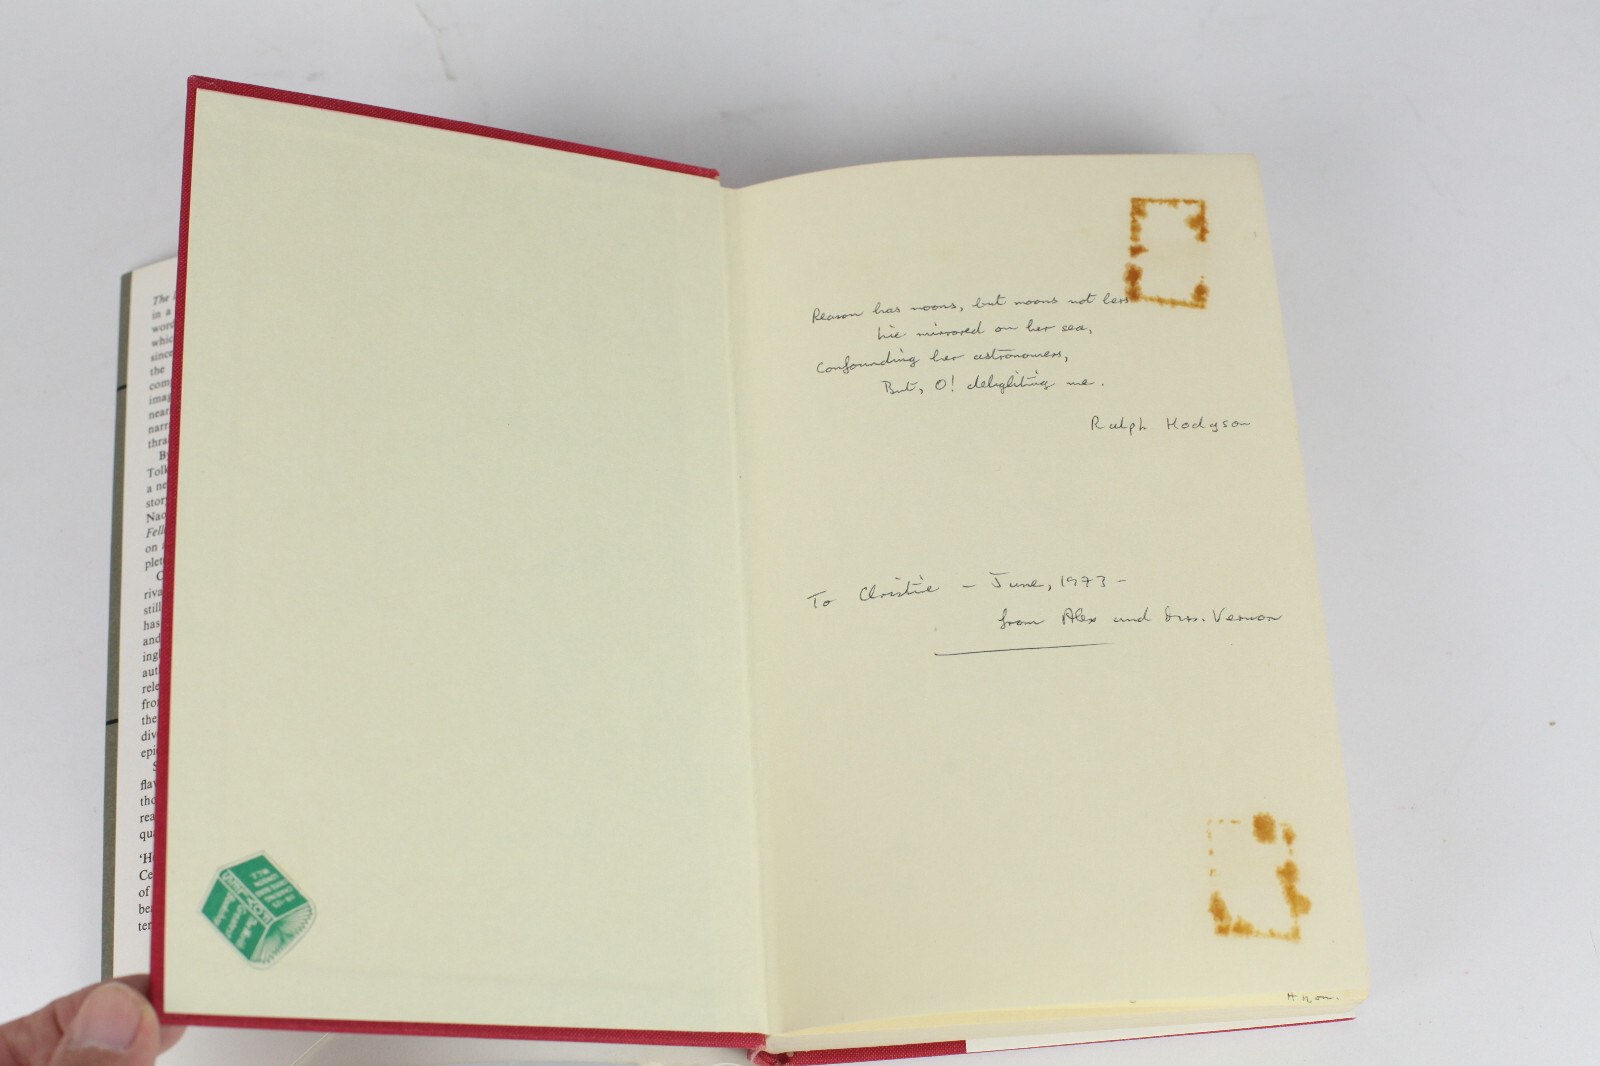 The
in a
word
which
since
the
com
imag
near
narr
thra
By
Tolk
a ne
stor
Nao
Fell
on
plet
C
riva
still
has
and
ing
aut
rele
from
the
dive
epi
S
flav
tho
rea
qu
'H
Ce
of
be
ter
Reason has moons, but moons not hers
Lie mirrored on her sea,
Confounding her astronomers,
But, O! delighting me.
Ralph Hodgson
To Christie – June, 1973 –
from Alex and Mrs. Vernon
FOYLES
CHARING
CROSS ROAD
LONDON
W.C.2